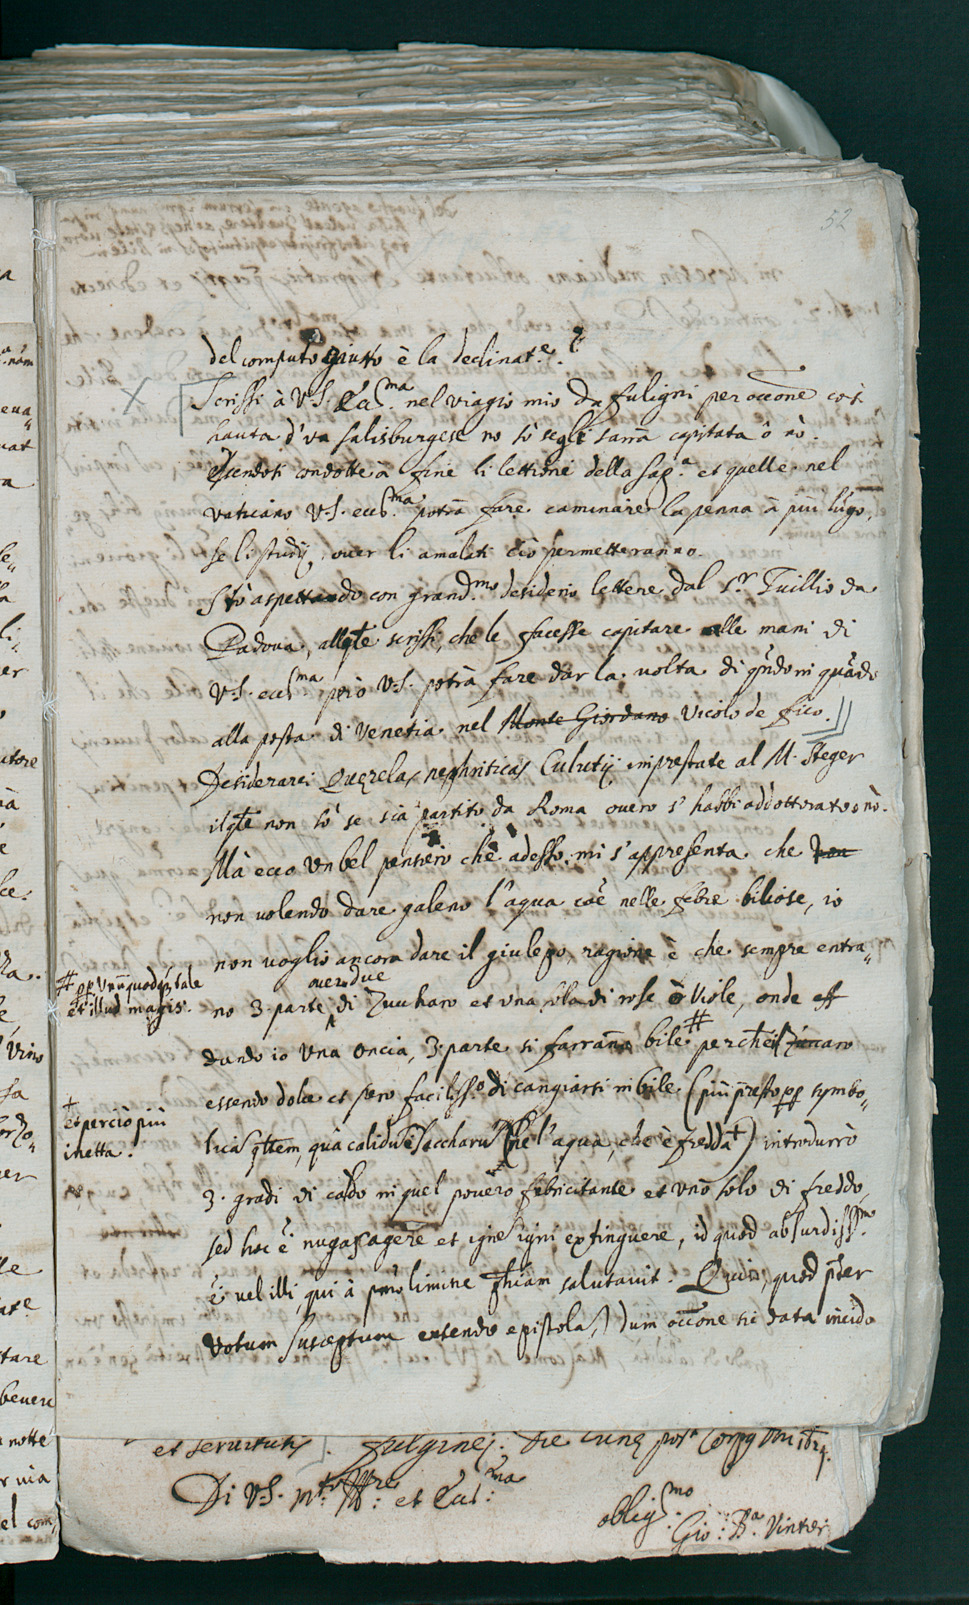 52
del computo giusto è la declinat.e
Scrissi à V.S. Ecc.ma nel viagio mio da fuligni per occone così
hauta d'un salisburgese no sò segli sarrà capitata ò nò.
essendosi condotte à fine li lettioni della sap.a et quelle nel
vaticano V.S. ecc.ma potrà fare caminare la penna à più lugo,
se li studij, ouer li amalati ciò permetteranno.
Stò aspettando con grand.mo desiderio lettere dal S.r Tuillio da
Padoua, allqle scrissi, che le facesse capitare alle mani di
V.S. ecc.ma però V.S. potrà fare dar la uolta di qndo in quado
alla posta di Venetia nel Monte Giordano Vicolo de fico.
Desiderarei Querelas nephriticas Culutij imprestate al M. Steger
ilqle non sò se sia partito da Roma ouero s' habbi addottorato o nò.
Mà ecco un bel pensiero che adesso mi s'appresenta che non
non uolendo dare galeno l'aqua coe nelle febre biliose, io
non uoglio ancora dare il giulepo ragione è che sempre entra„
# pp Unuquodq tale
et illud magis.
ouer due
no 3 parte di Zuccharo et una sola di rose ò Viole, onde
dando io una oncia, 3 parte si farrano bile # perche il Zuccaro
essendo dolce et pero faciliss.o di cangiarsi in bile (più presto pp symbo„
† et perciò più
inetta.
lica qltem, quà calidu è saccharu) (nè l'aqua, che è fredda†) introdurrò
3. gradi di caldo in quel pouero febricitante et uno solo di freddo,
sed hoc è nugas agere et igne igni extinguere, id quod absurdiss.mo
è uel illi, qui à prmo limine phiam salutauit. Quid, quod pter
votum susceptum extendo epistola, dum occone sic data incido
et seruitutis. Fulginej. Die Lunę post Corpq
Di V.S. m.to Ill.re et Ecc.ma
oblig.mo
Gio: B.a Vinter